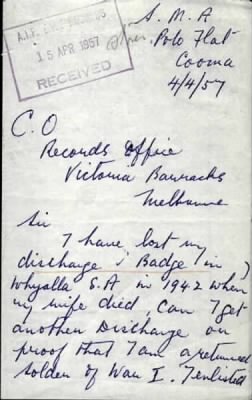 A.I.F.
15 APR 1957
RECEIVED
S. M. A
Polo Flat
Cooma
4/4/57
C.O
Records Office
Victoria Barracks
Melbourne
Sir
I have lost my
discharge & Badge in
Whyalla S.A in 1942 when
my wife died, can I get
another Discharge on
proof that I am a returned
solder of War I. I enlisted